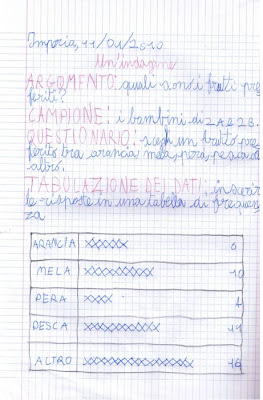 Imperia, 11/01/2010
Un'indagine
ARGOMENTO: quali sono i frutti pre
feriti?
CAMPIONE: i bambini di 2A e 2B.
QUESTIONARIO: scegli un frutto pre
ferito tra arancia mela, pera, pesca od
altro.
TABULAZIONE DEI DATI: inserire
le risposte in una tabella di frequen
za
ARANCIA XXXXXX 6
MELA XXXXXXXXXX 10
PERA XXXX 4
PESCA XXXXXXXXXXX 11
ALTRO 16